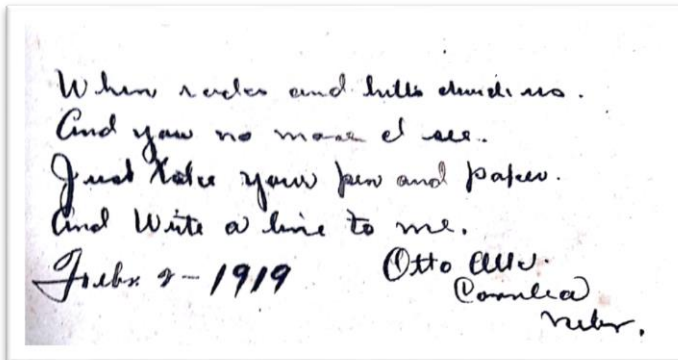 When rocks and hills divide us.
And you no more I see.
Just take your pen and paper.
And Write a line to me.
Febr 2-1919
Otto
Nebr.